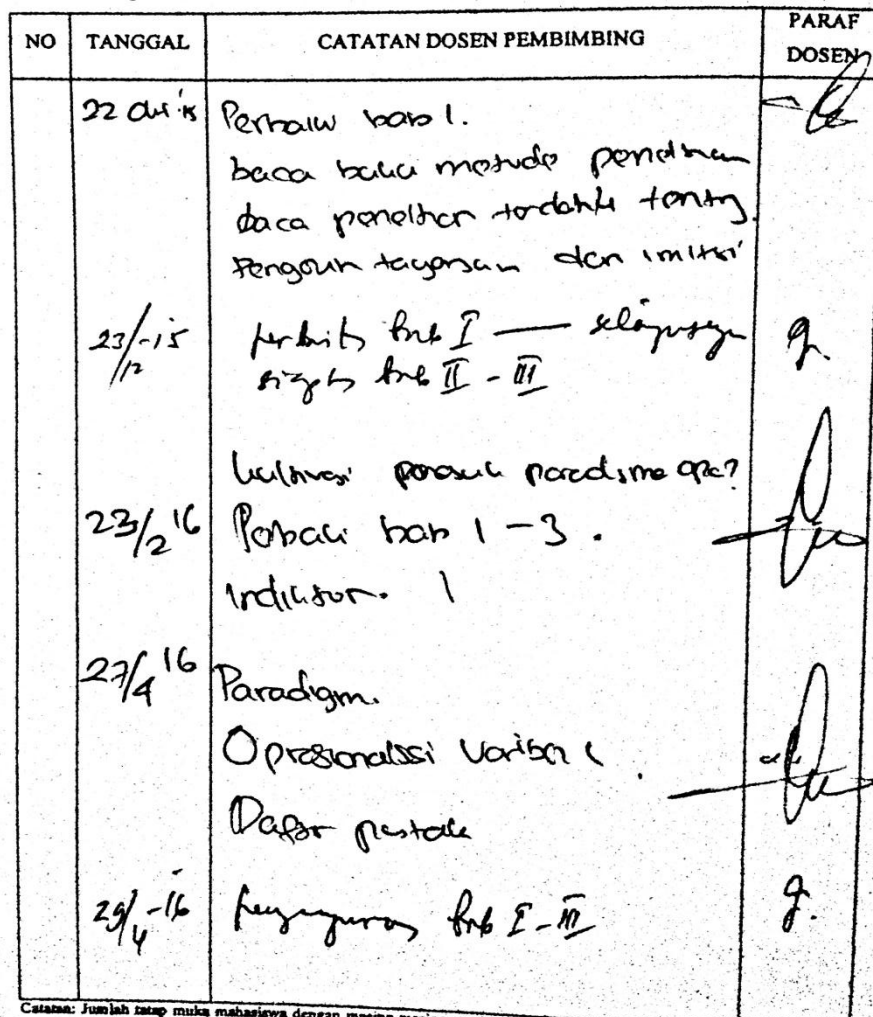 NO TANGGAL CATATAN DOSEN PEMBIMBING PARAF DOSEN
22 15 Perbaiki bab 1.
baca buku metode penelitian
baca penelitian terdahulu tentang
Pengaruh tayangan dan imitasi
23/12-15 bab I
bab II - III
kultivasi paradigma apa?
23/2 16 Perbaiki bab 1-3.
Indikator.
27/4 16 Paradigm.
Oprasionalisasi Variabel
Daftar pustaka
29/4-16 bab I-III
Catatan: Jumlah tatap muka mahasiswa dengan masing